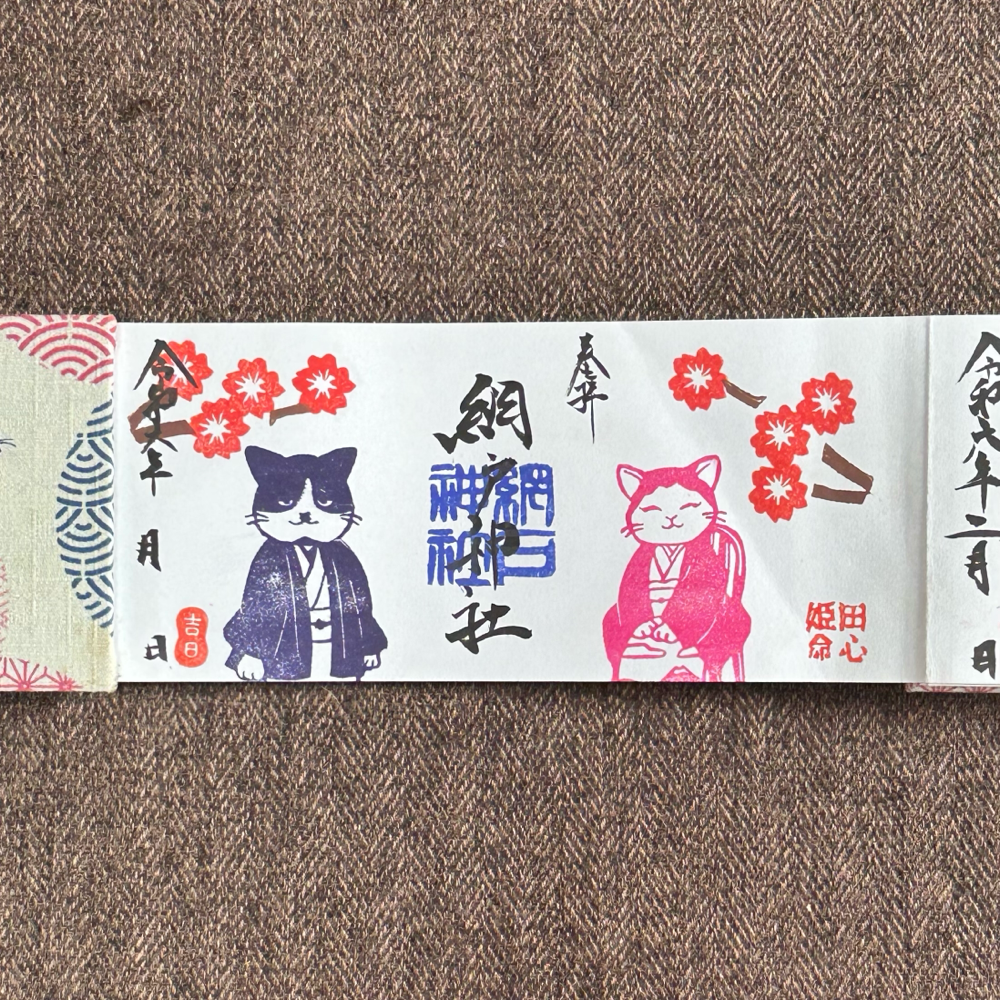 令和六年二月　日
田心
姫命
奉拝
網戸神社
網戸
神社
令和六年　月　日
吉日